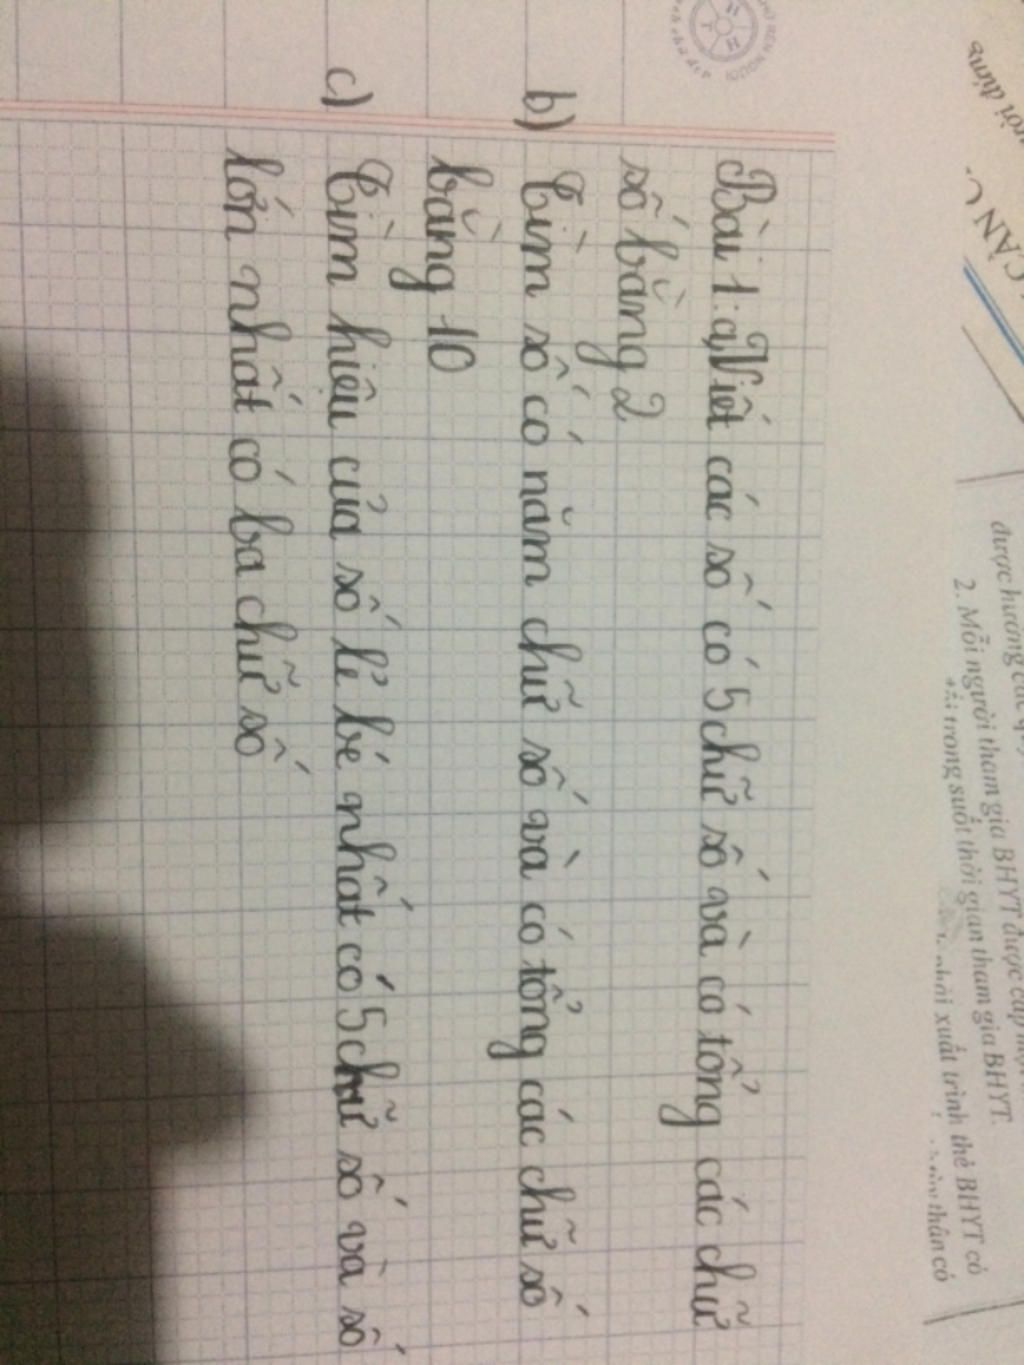 ười dùng
CĂN C
được hưởng các
2. Mỗi người tham gia BHYT được cấp
trong suốt thời gian tham gia BHYT.
phải xuất trình thẻ BHYT có
thân có
Bài 1: a, Viết các số có 5 chữ số và có tổng các chữ
số bằng 2
b) Tìm số có năm chữ số và có tổng các chữ số
bằng 10
c) Tìm hiệu của số lẻ bé nhất có 5 chữ số và số
lớn nhất có ba chữ số